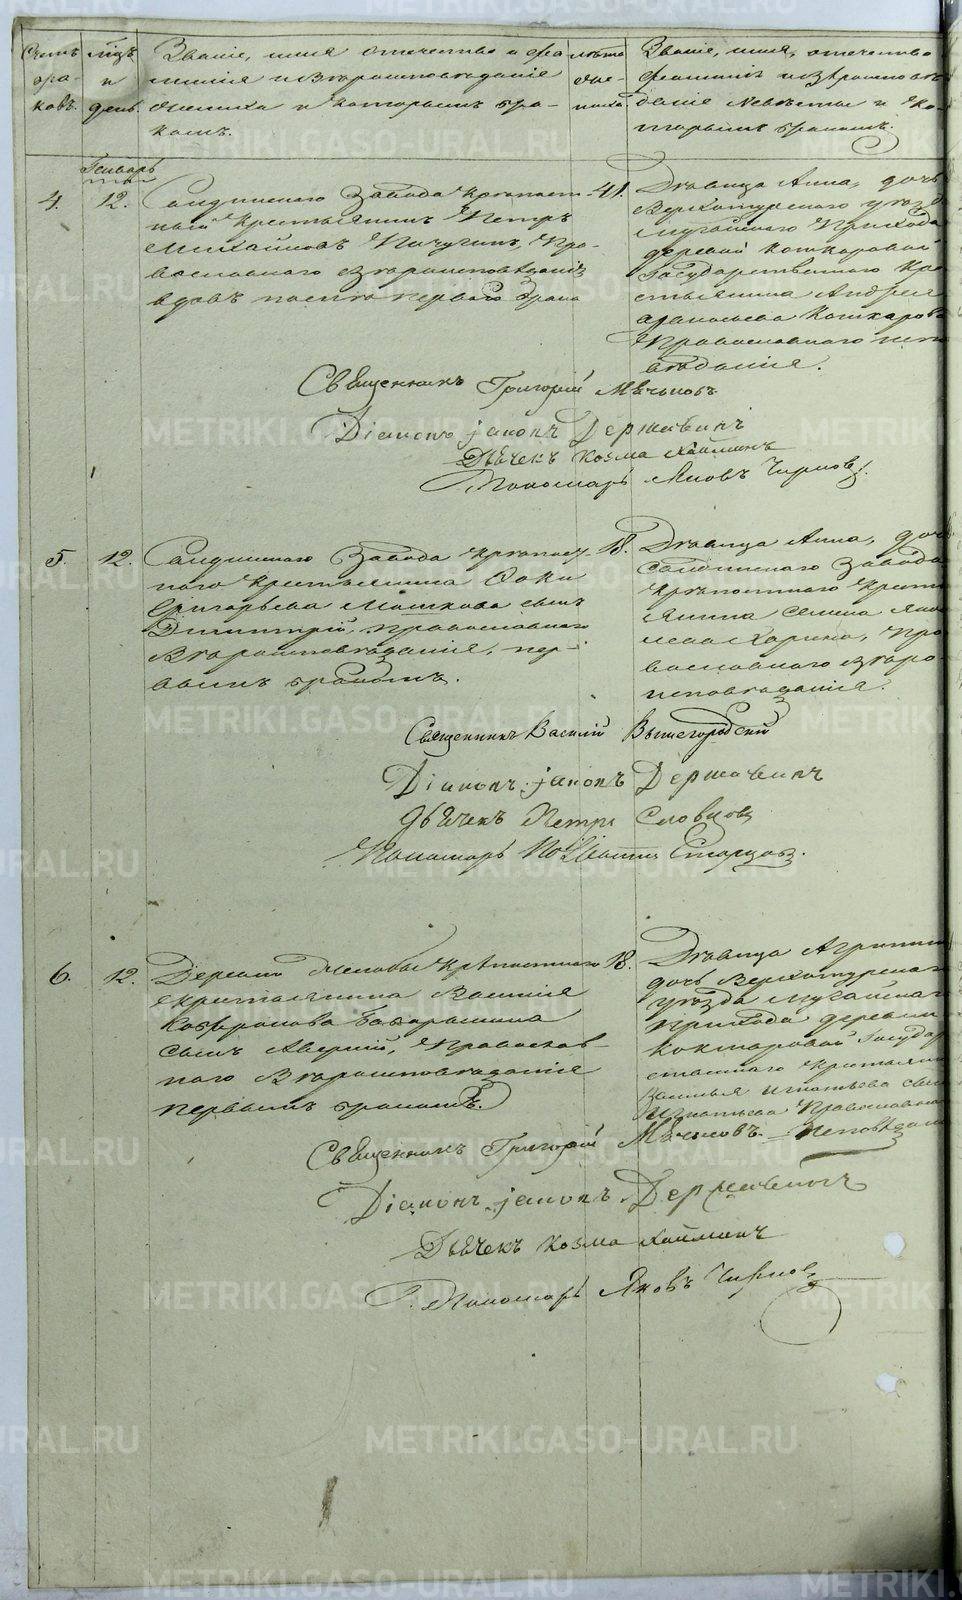 Счетъ бра- ковъ.
Мѣц. и день.
Званіе, имя отечество и фа-
милія и Вѣроисповѣданіе
жениха и которымъ бра-
комъ.
лѣта же- ниха.
Званіе, имя, отечество
фамилія и вѣроисповѣ
даніе Невѣсты и ко-
торымъ бракомъ.
Генварь
4. 12.
Салдинскаго Завода Крѣпост
ный Крестьянинъ Петръ
Михайловъ Пичугинъ, Пра-
вославнаго вѣроисповѣданія
вдовъ послѣ перваго брака
41.
Дѣвица Анна, дочь
Верхотурскаго уѣзда
Мугайского Прихода
деревни Кошкаровой
Государственнаго Кре
стьянина Андрея
Афанасьева Кошкарова
Православнаго испо
вѣданія.
Священникъ Григорій Мѣчьковъ
Діаконъ Іаковъ Державинъ
Дьячекъ Козма Хайминъ
Пономарь Яковъ Чирковъ.
5. 12.
Салдинскаго Завода Крѣпост
наго Крестьянина Фоки
Григорьева Мошкова сынъ
Димитрій, православнаго
Вѣроисповѣданія, пер-
вымъ бракомъ.
18.
Дѣвица Анна, дочь
Салдинскаго Завода
Крѣпостнаго Кресть
янина Семена Яков
лева Харина, Пра
вославнаго вѣро-
исповѣданія.
Священникъ Василій Вышегородскій
Діаконъ Іаковъ Державинъ
Дьячекъ Петръ Словцовъ
Пономарь Старцовъ.
6. 12.
Деревни Крѣпостнаго
Крестьянина Василія
сынъ Аверкій, Православ-
наго Вѣроисповѣданія
первымъ бракомъ.
18.
Дѣвица Агрипина
дочь Верхотурскаго
уѣзда Мугайскаго
прихода деревни
Кокшаровой Государ
ственнаго Крестьянина
Игнатьева
Игнатьева Православнаго
Исповѣданія
Священникъ Григорій Мѣчьковъ.
Діаконъ Іаковъ Державинъ
Дьячекъ Козма Хайминъ
Пономарь Яковъ Чирковъ
METRIKI.GASO-URAL.RU